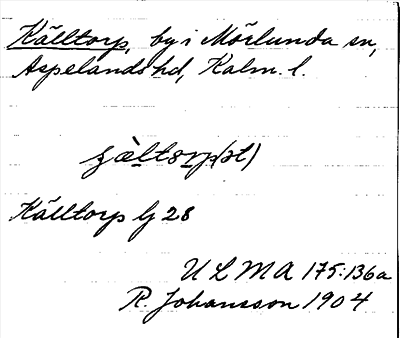 Källtorp, by i Mörlunda sn,
Aspelands hd, Kalm. l.
Källtorp lj 28
ULMA 175:136a
R. Johansson 1904